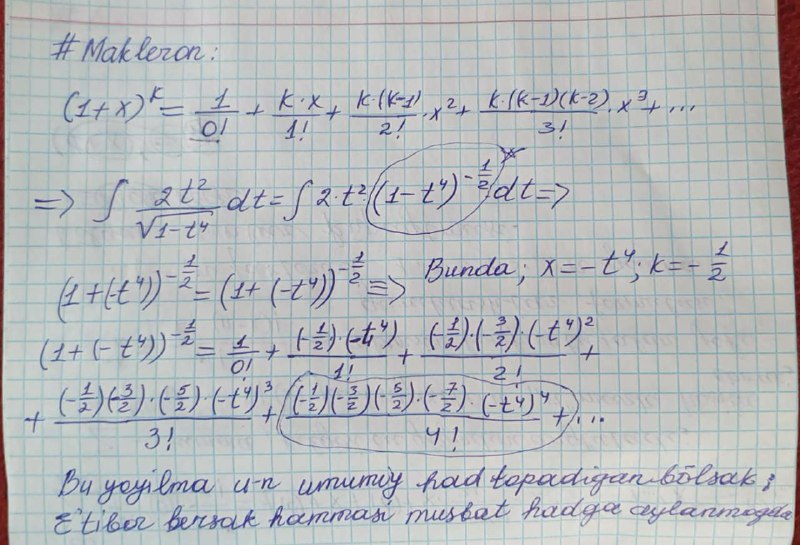 # Makleron:
(1+x)^k = 1/0! + k·x/1! + k·(k-1)/2! ·x² + k·(k-1)(k-2)/3! ·x³ + ...
=> ∫ 2t²/√(1-t⁴) dt = ∫ 2·t² (1-t⁴)^(-1/2) dt =>
(1+(-t⁴))^(-1/2) = (1+(-t⁴))^(-1/2) => Bunda; x = -t⁴; k = -1/2
(1+(-t⁴))^(-1/2) = 1/0! + (-1/2)·(-t⁴)/1! + (-1/2)·(-3/2)·(-t⁴)²/2! +
+ (-1/2)(-3/2)·(-5/2)·(-t⁴)³/3! + (-1/2)(-3/2)(-5/2)·(-7/2)·(-t⁴)⁴/4! + ...
Bu yoyilma u-n umumiy had topadigan bo'lsak;
E'tibor bersak hammasi musbat hadga aylanmoqda